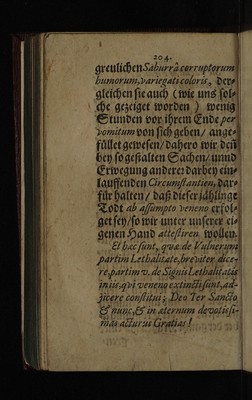 204.
greulichen Saburrâ corruptorum
humorum, variegati coloris, der-
gleichen sie auch (wie uns sol-
che gezeiget worden) wenig
Stunden vor ihrem Ende per
vomitum von sich geben / ange-
füllet gewesen / dahero wir deñ
bey so gestalten Sachen / unnd
Erwegung anderer darbey ein-
lauffenden Circumstantien, dar-
für halten / daß dieser jählinge
Todt ab assumpto veneno erfol-
get sey / so wir unter unserer ei-
genen Hand attestiren wollen.
Et hæc sunt, quæ de Vulnerum
partim Lethalitate, breviter dice-
re, partim v. de Signis Lethalitatis
in iis, qvi veneno extincti sunt, ad-
jicere constitui; Deo Ter Sancto
& nunc, & in æternum devotissi-
mas acturus Gratias!